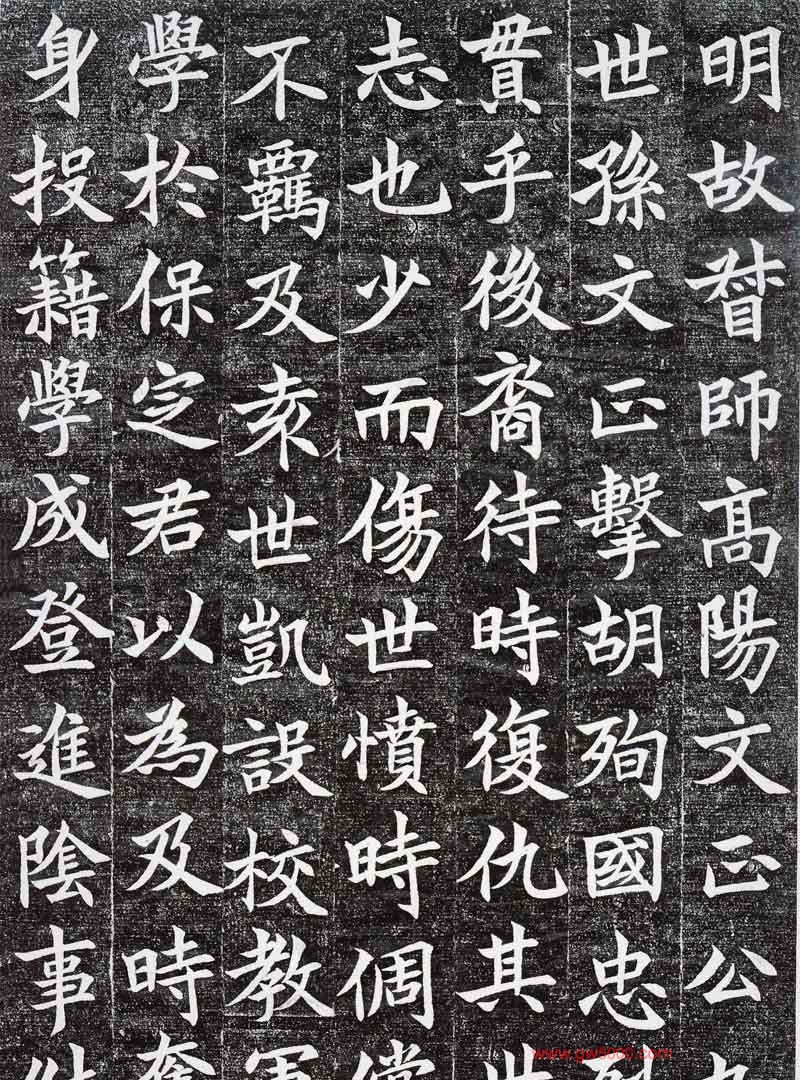 明故督師高陽文正公
世孫文正擊胡殉國忠
貫乎後裔待時復仇其
志也少而傷世憤時倜
不羈及袁世凱設校教
學於保定君以為及時
身投籍學成登進陰事
www.gw5000.com